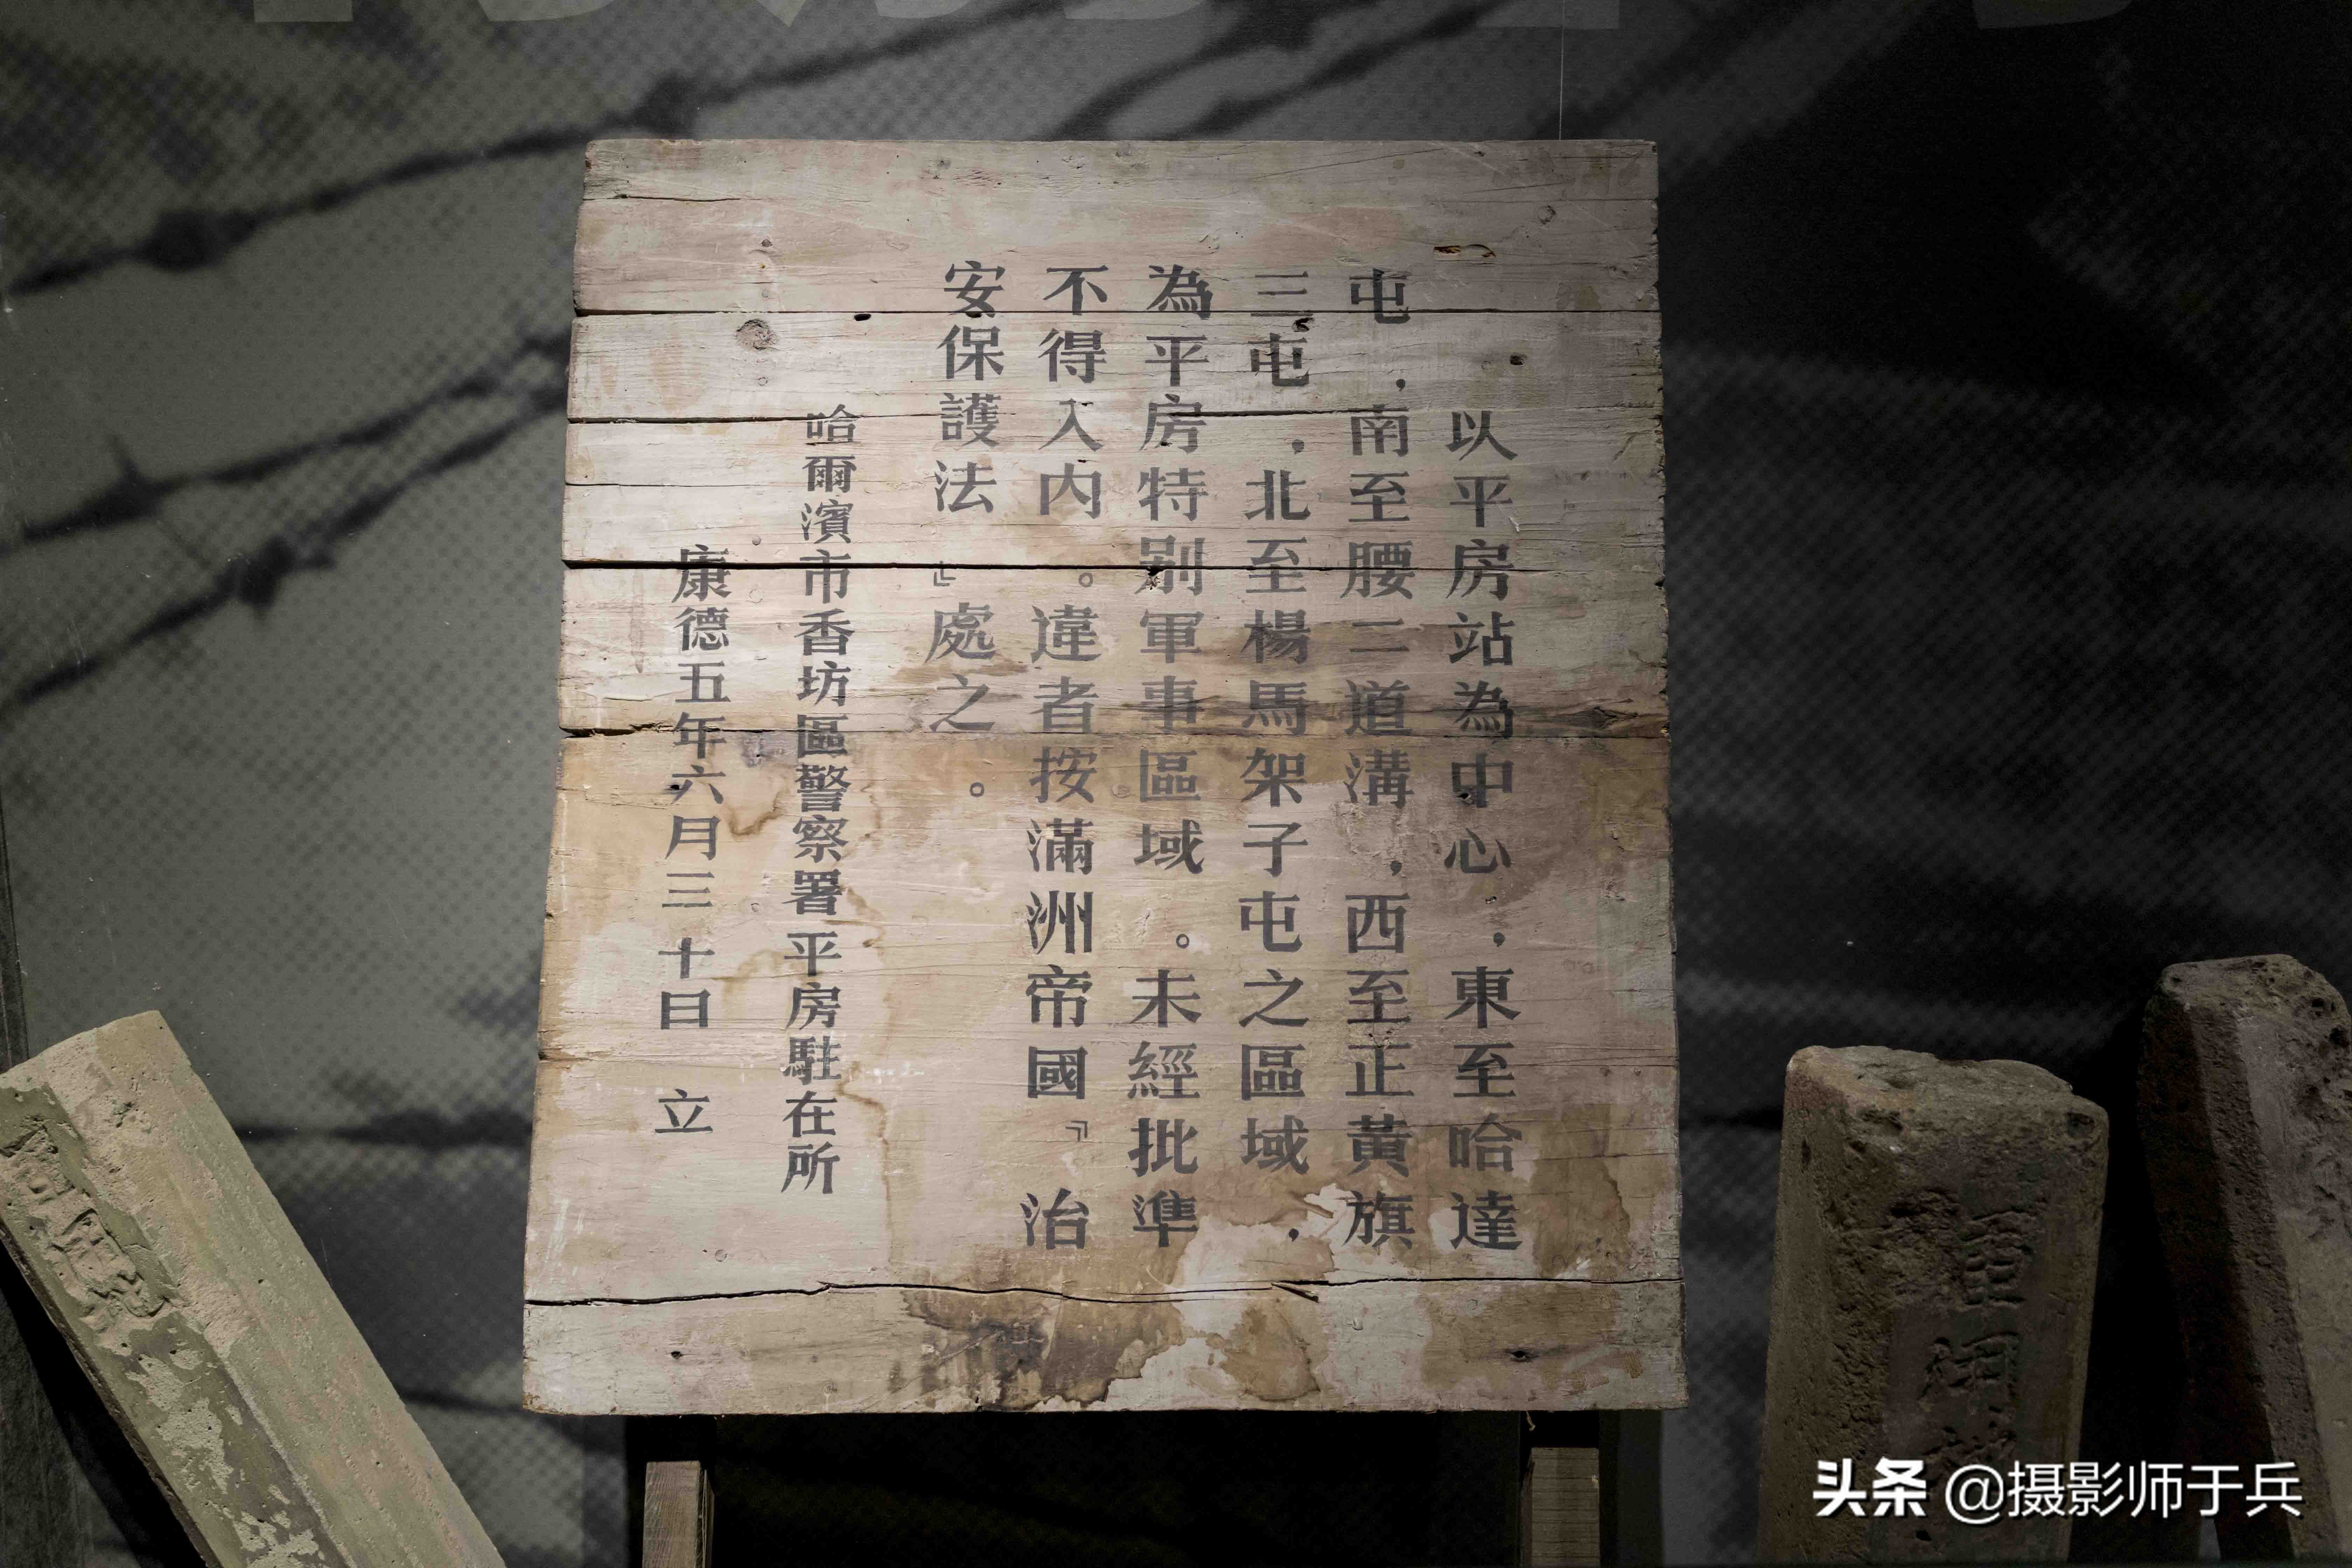 以平房站為中心，東至哈達
屯，南至腰二道溝，西至正黃旗
三屯，北至楊馬架子屯之區域，
為平房特別軍事區域。未經批準
不得入内。違者按滿洲帝國『治
安保護法』處之。
哈爾濱市香坊區警察署平房駐在所
康德五年六月三十日 立
头条 @摄影师于兵